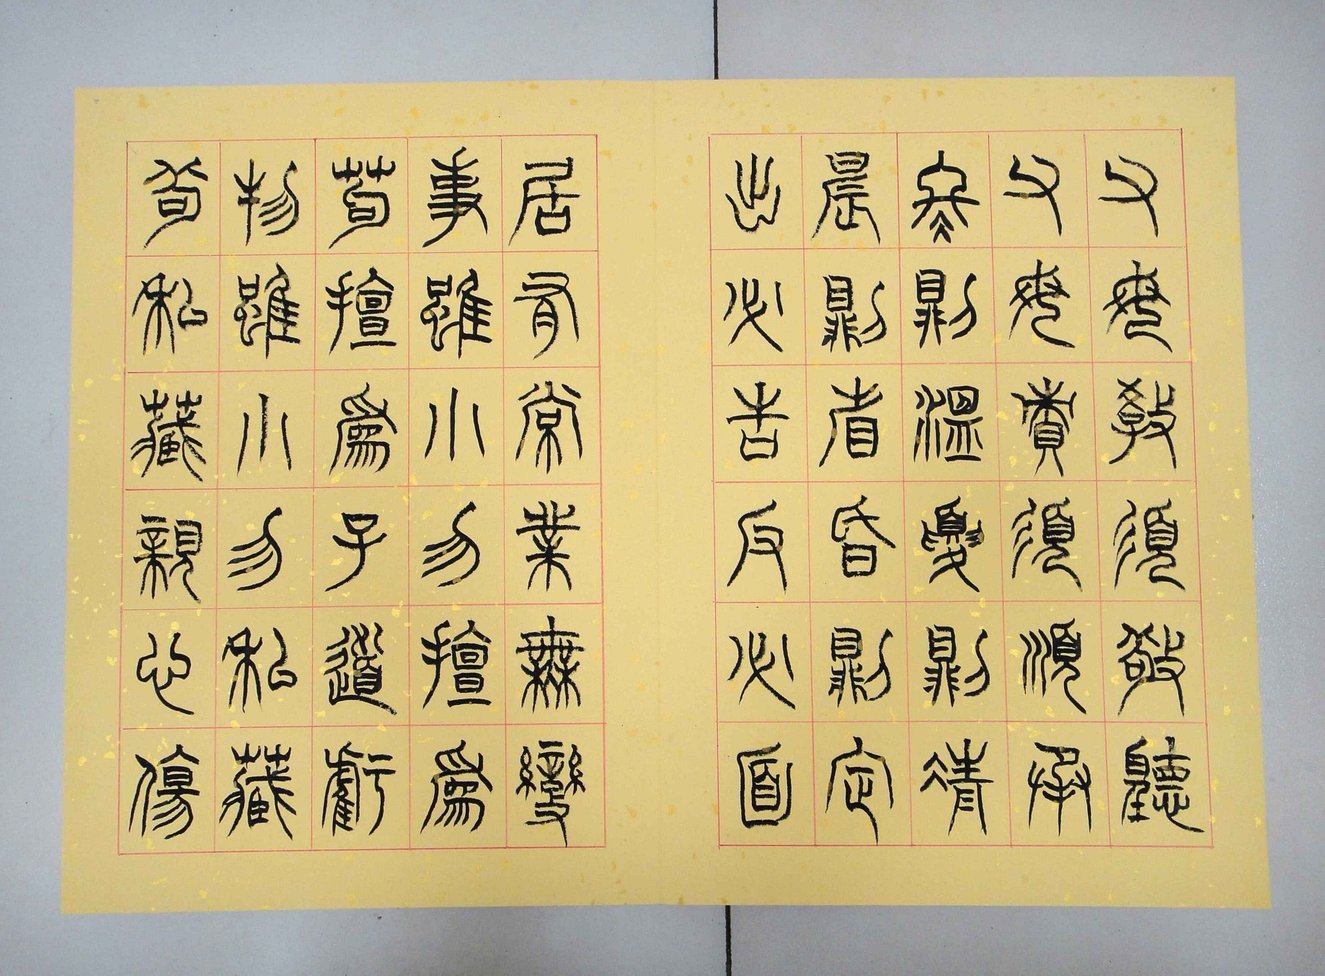 父母教須敬聽
父母責須順承
冬則溫夏則凊
晨則省昏則定
出必告反必面
居有常業無變
事雖小勿擅為
苟擅為子道虧
物雖小勿私藏
苟私藏親心傷